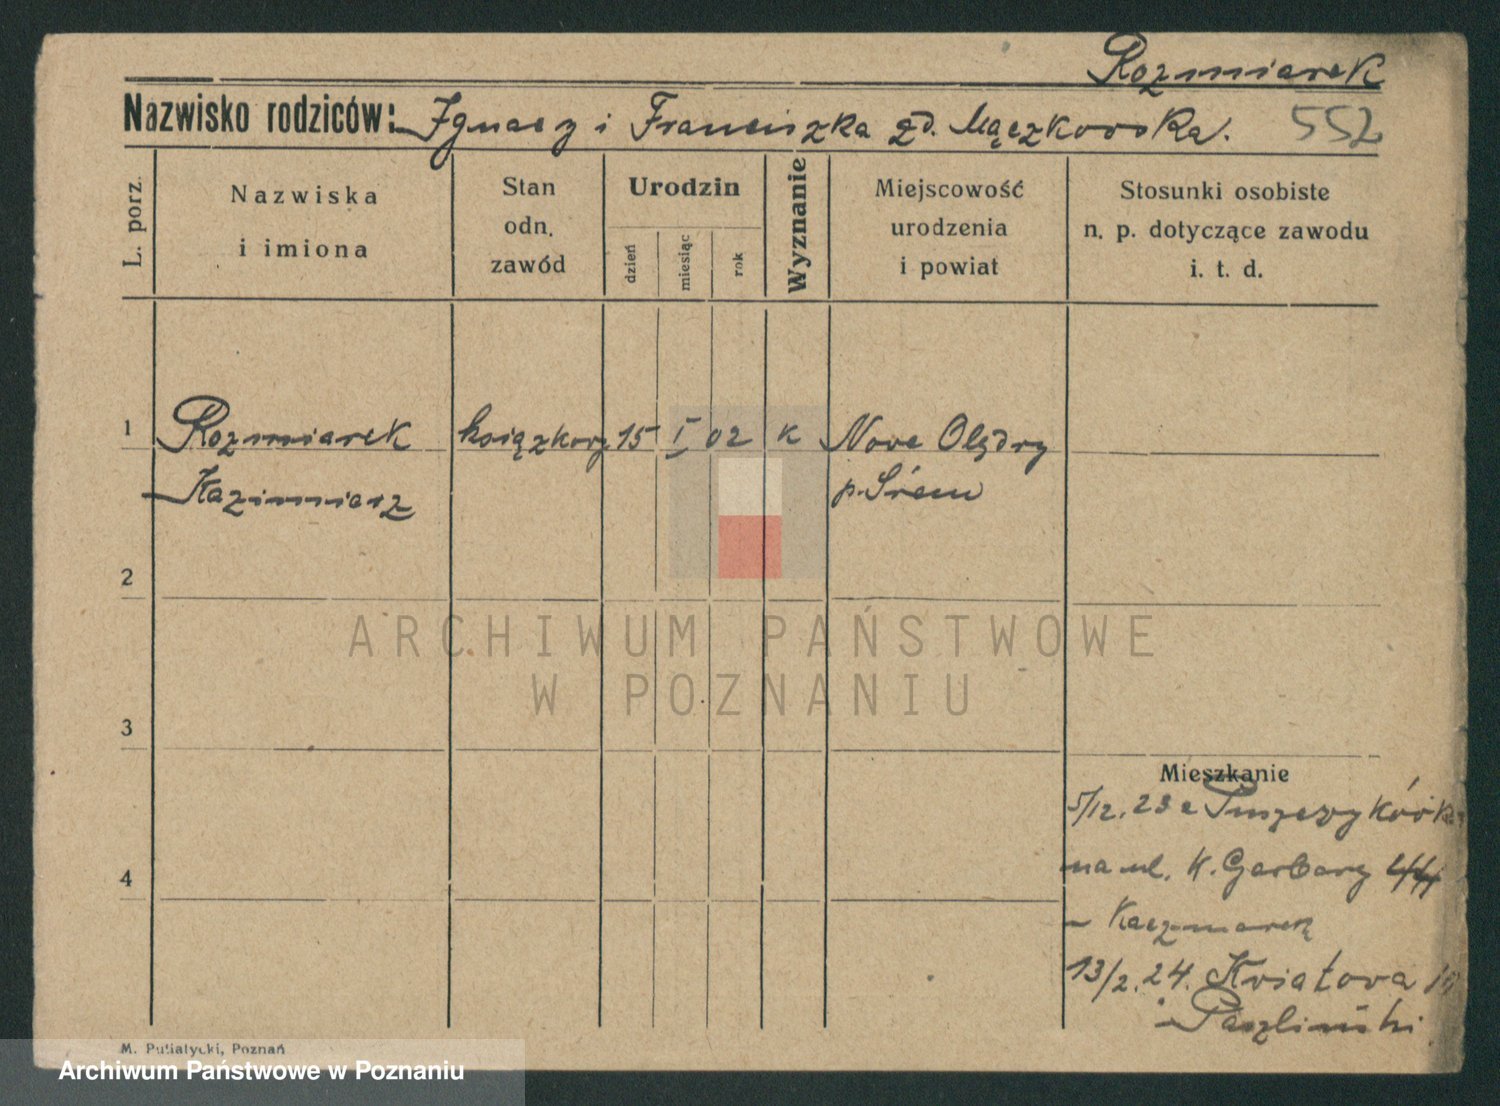 Rozmiarek
Nazwisko rodziców: Ignacy i Franciszka zd. Mączkowska. 552
L. porz.
Nazwiska
i imiona
Stan
odn.
zawód
Urodzin
dzień
miesiąc
rok
Wyznanie
Miejscowość
urodzenia
i powiat
Stosunki osobiste
n. p. dotyczące zawodu
i. t. d.
1 Rozmiarek książkorz 15 I 02 k Nowe Olędry
Kazimierz p. Śrem
2
ARCHIWUM PAŃSTWOWE
W POZNANIU
3
Mieszkanie
5/12. 23 z
na ul. K. Garbary 44
4
– Kaczmarek
13/2. 24. Kwiatowa
M. Putiatycki, Poznań
Archiwum Państwowe w Poznaniu